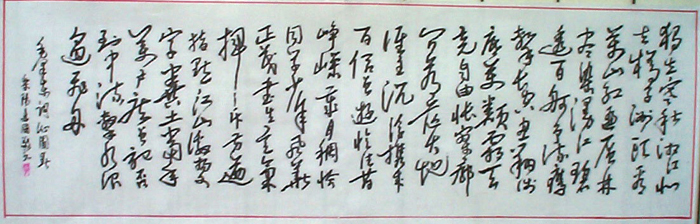 独立寒秋湘江北
去橘子洲头看
万山红遍层林
尽染漫江碧
透百舸争流鹰
击长空鱼翔浅
底万类霜天
竞自由怅寥廓
问苍茫大地
谁主沉浮携来
百侣曾游忆往昔
峥嵘岁月稠恰
同学少年风华
正茂书生意气
挥斥方遒
指点江山激扬文
字粪土当年
万户侯曾记否
到中流击水浪
遏飞舟
毛泽东词沁园春